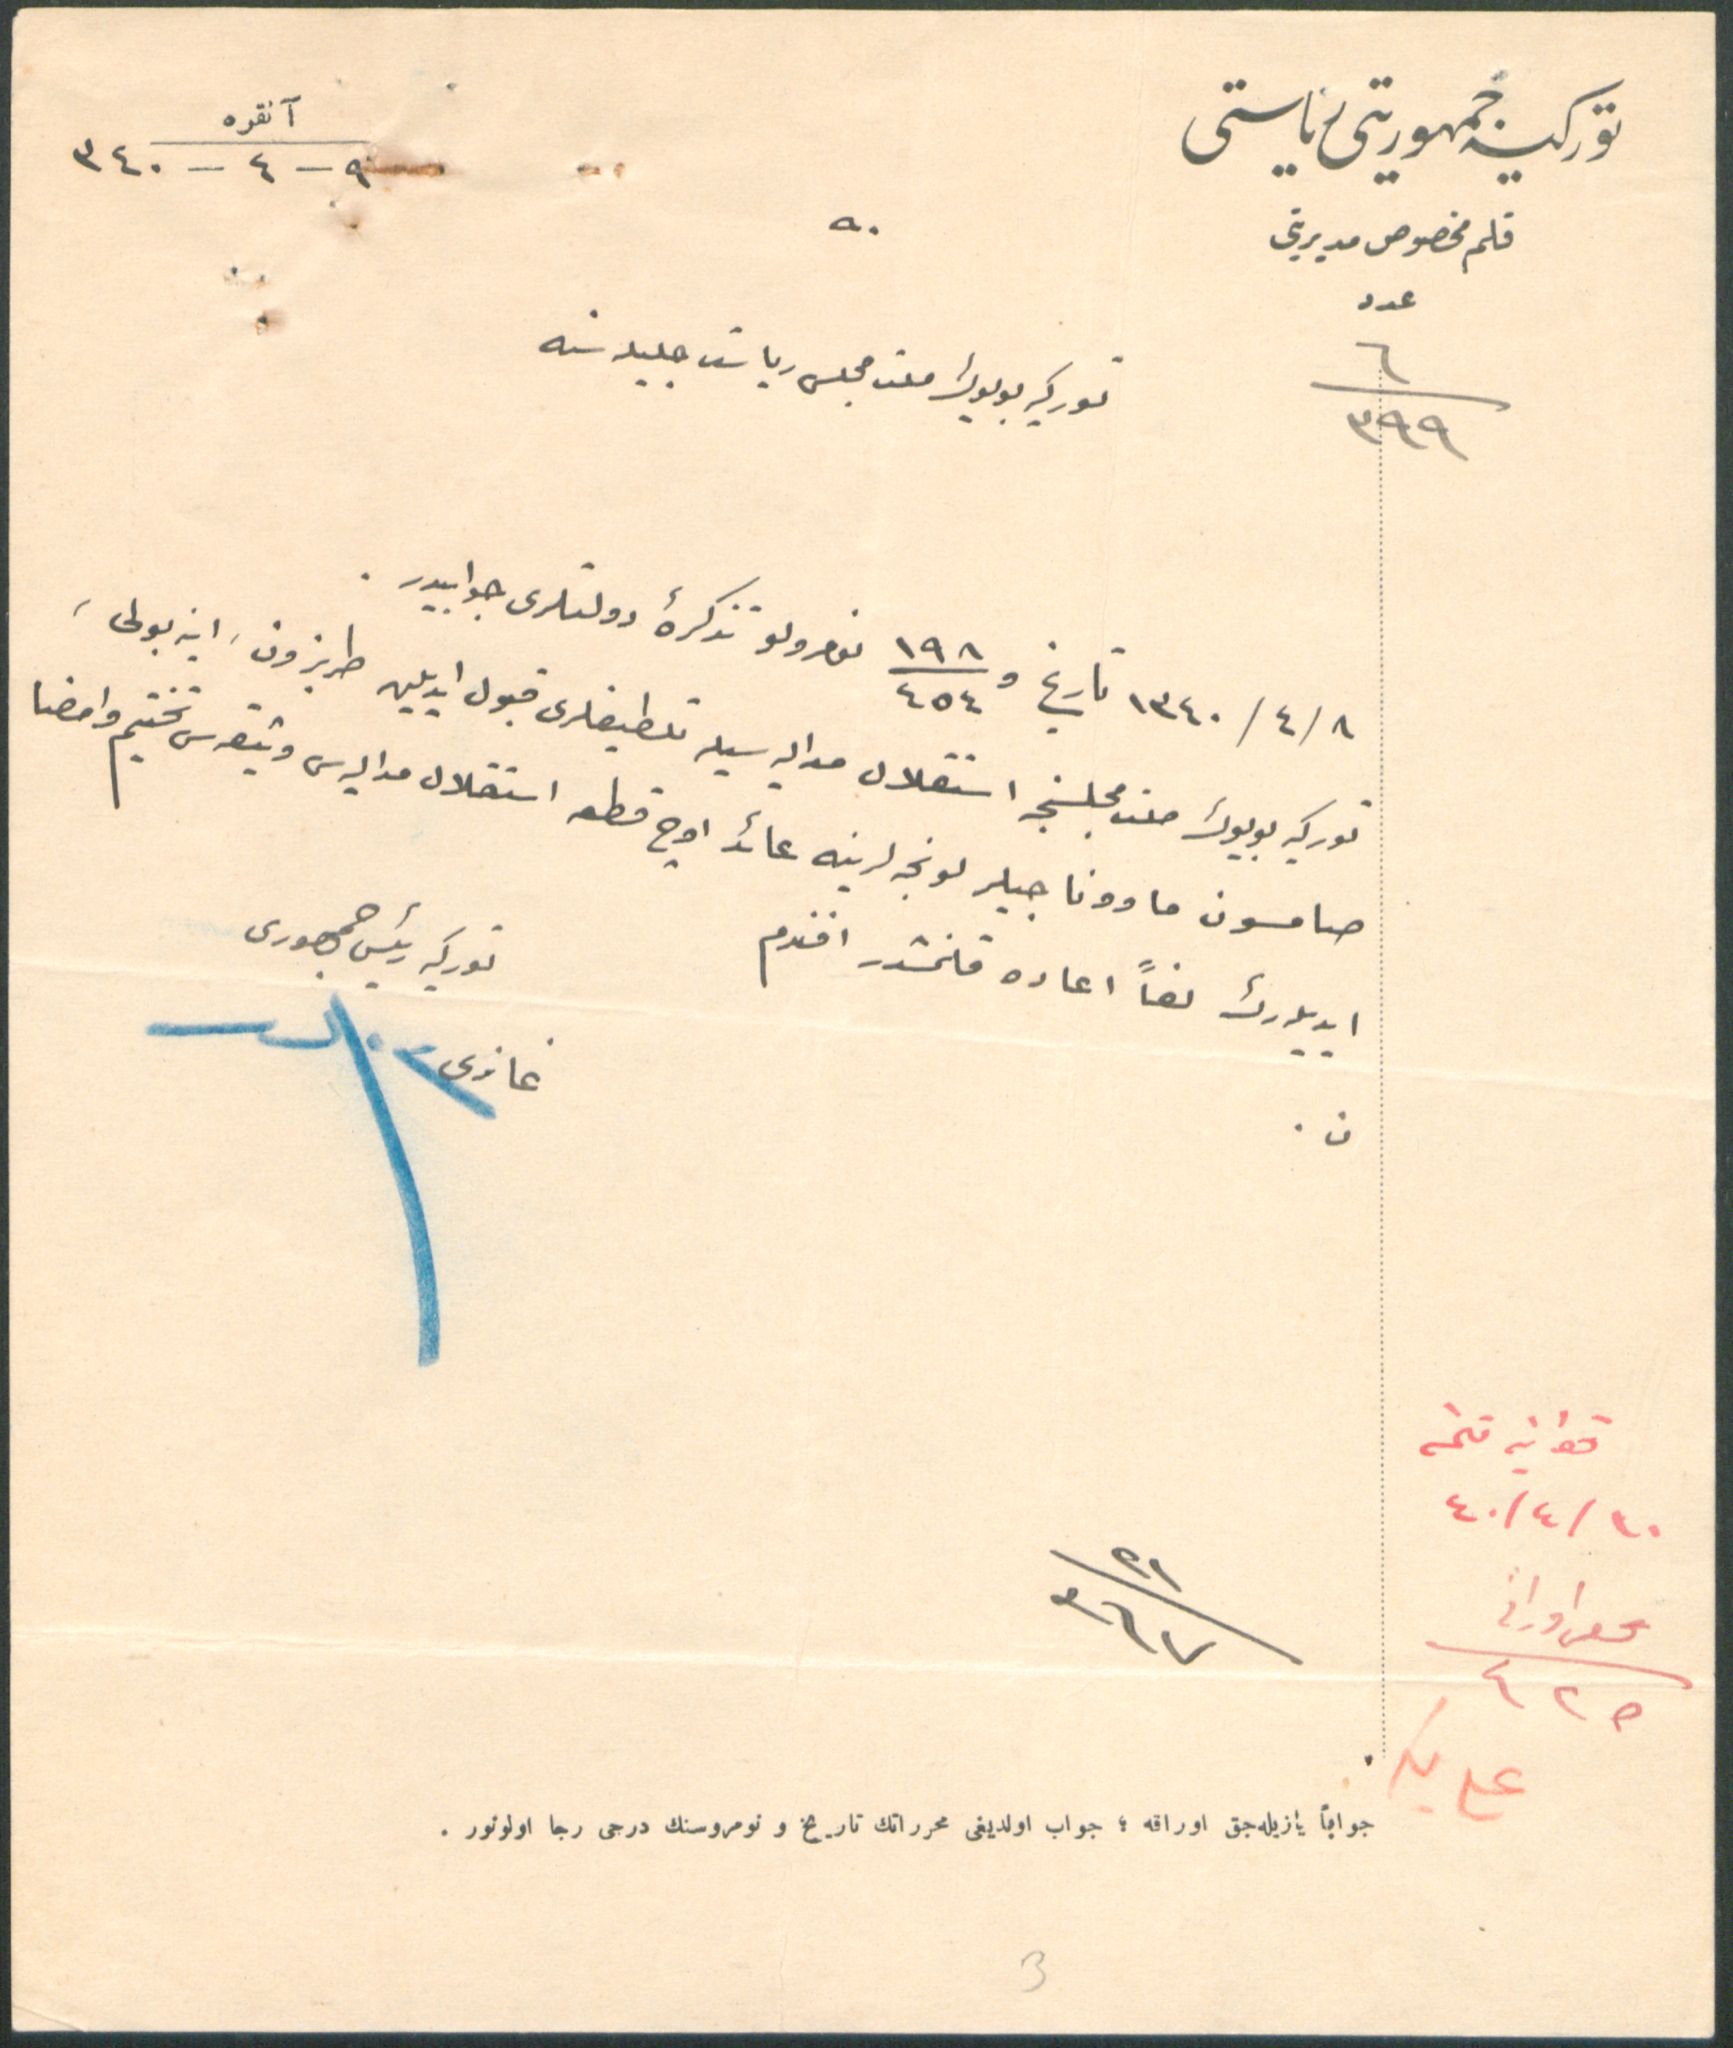 توركيه جمهوريتی رياستی
قلم مخصوص مديريتی
عدد
٦
٣٩٩
آنقره
٩ - ٤ - ٣٤٠
توركيه بويوك ملت مجلسی رياست جليله سنه
٨ / ٤ / ١٣٤٠ تاريخ و ١٩٨/٤٥٤ نومرولو تذكرهٔ دولتلری جوابيدر .
توركيه بويوك ملت مجلسنجه استقلال مداليه سيله تلطيفلری قبول ايديلن طربزون، اينه بولی،
صامسون ماووناجيلر لونجه لرينه عائد اوچ قطعه استقلال مداليه سی وثيقه سی تختيم وامضا
ايديله رك لفاً اعاده قلنمشدر افندم
توركيه رئيس جمهوری
غازی م . كمال
ن .
قوانين قلمنه
١٠ / ٤ / ٤٠
مجلس اوراق
٤٢٥
علی بك
جواباً يازيله جق اوراقه ؛ جواب اولديغی محرراتك تاريخ و نومروسنك درجی رجا اولونور .
3